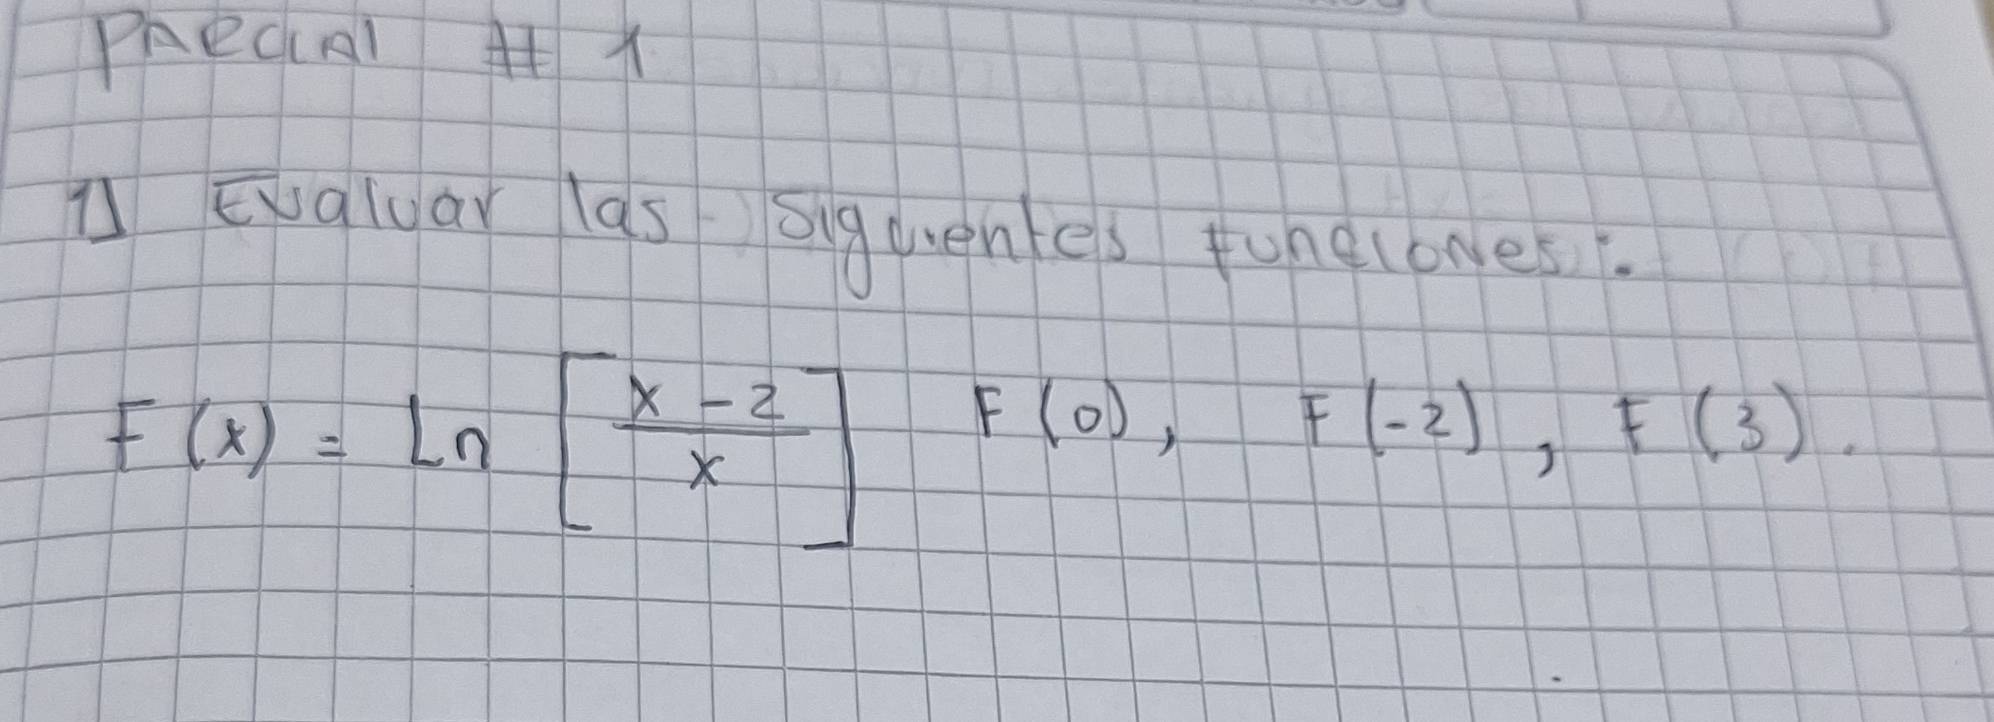 Parcial # 1
1] Evaluar las siguientes funciones:
F(x) = Ln [x - 2 / x] F(0), F(-2), F(3).